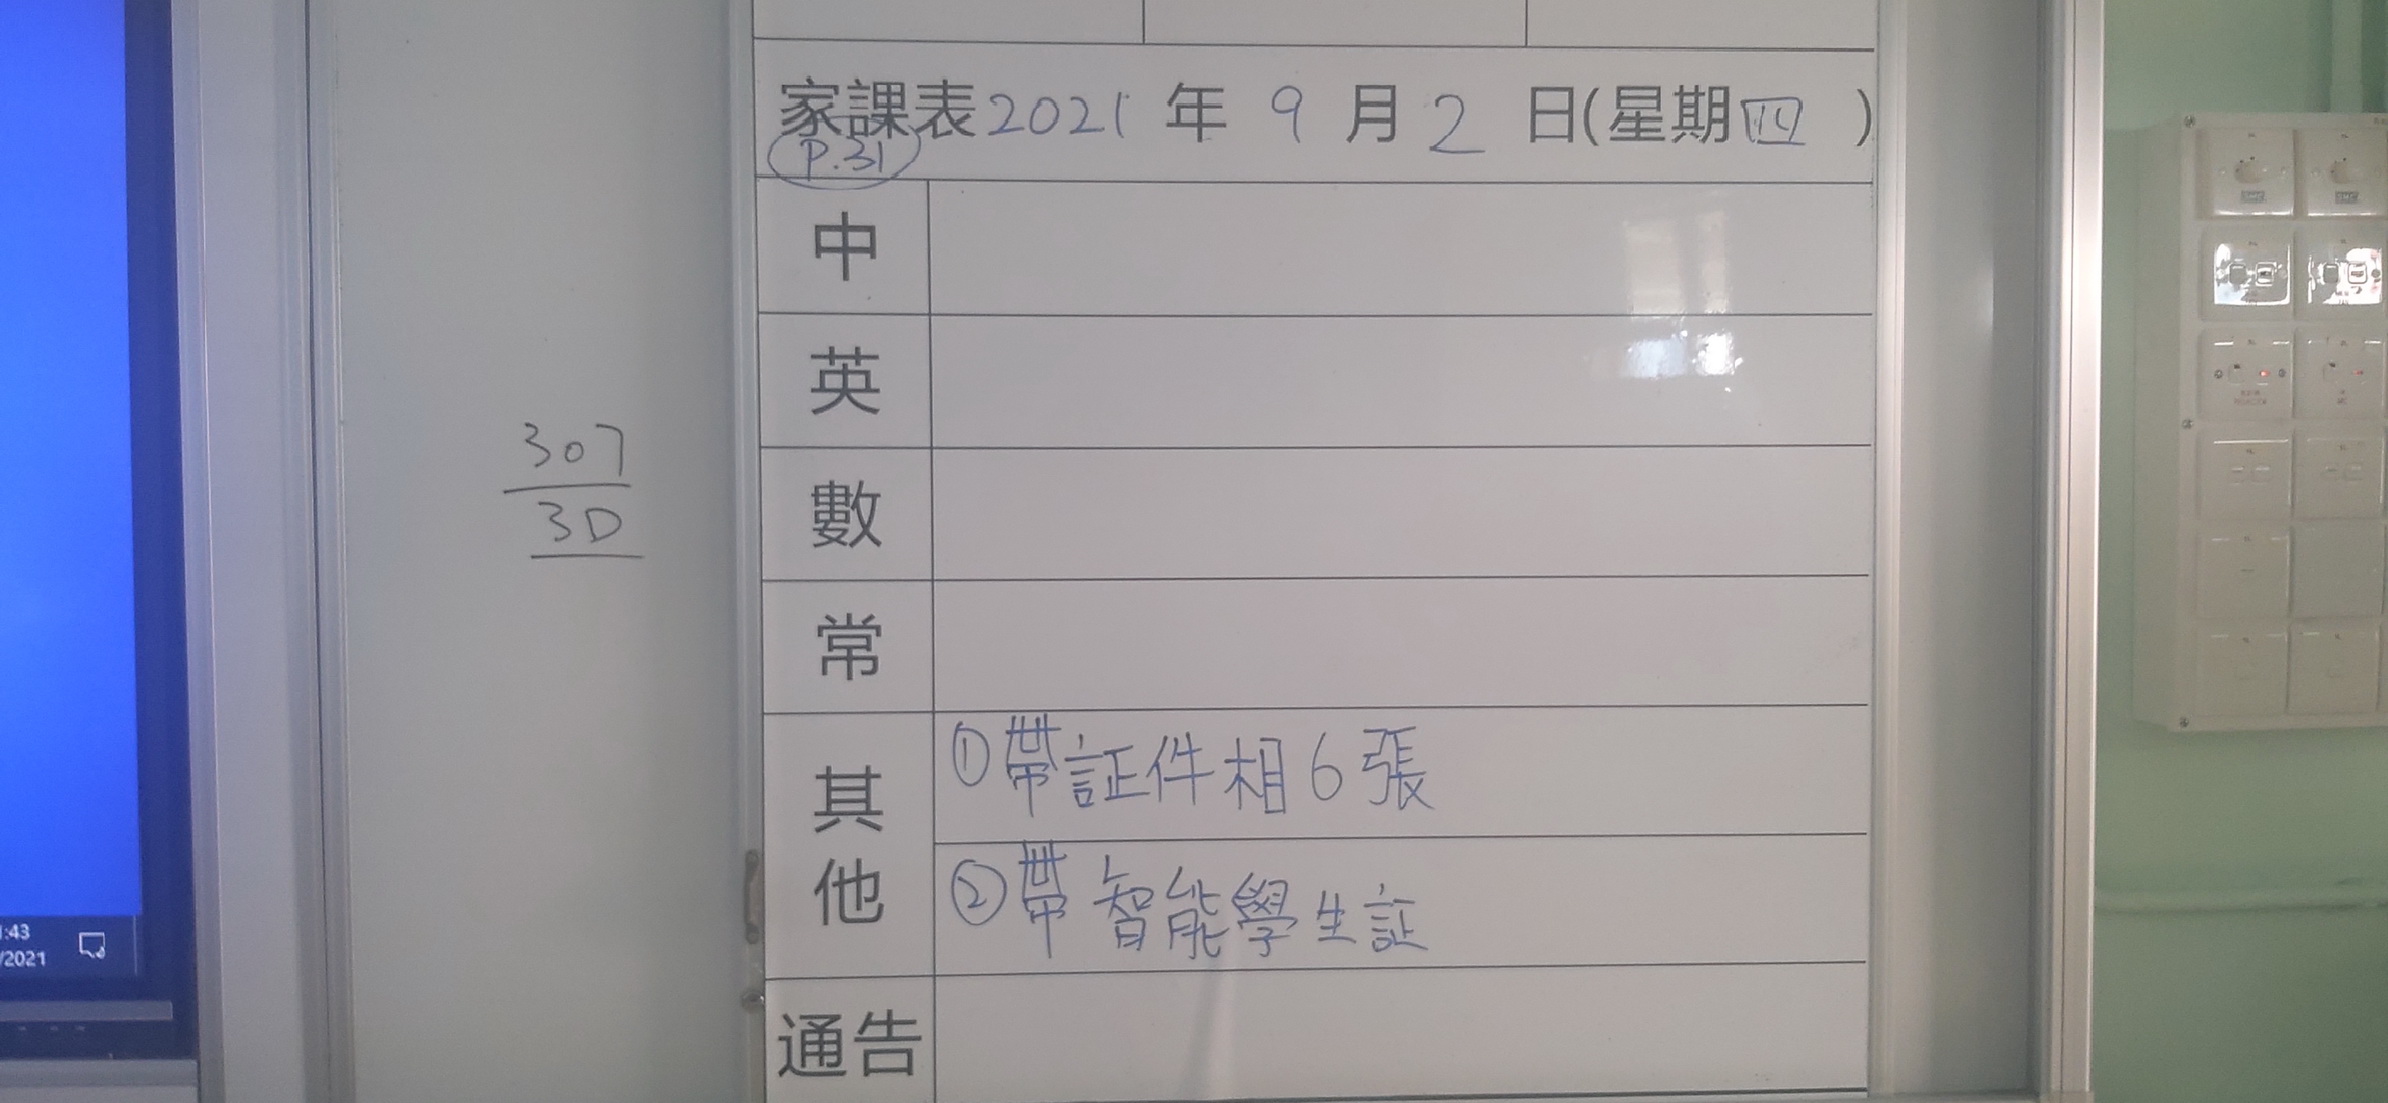 家課表2021年9月2日(星期四)
P.31
中
英
數
常
其他
①帶証件相6張
②帶智能學生証
通告
307
3D
:43
/2021